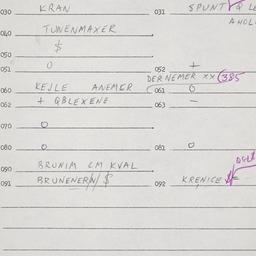 030 KRAN 031 SPUNT
040 TUNENMAXER
$
050
051 0 052 +
DER NEMER XX (385
060 KEJLE ANEMER 061 0
062 + QBLEXENE 063 —
070 0
080 0 081 0
090 BRUNIM CM KVAL
091 BRUNENERN/$ 092 KRENICE